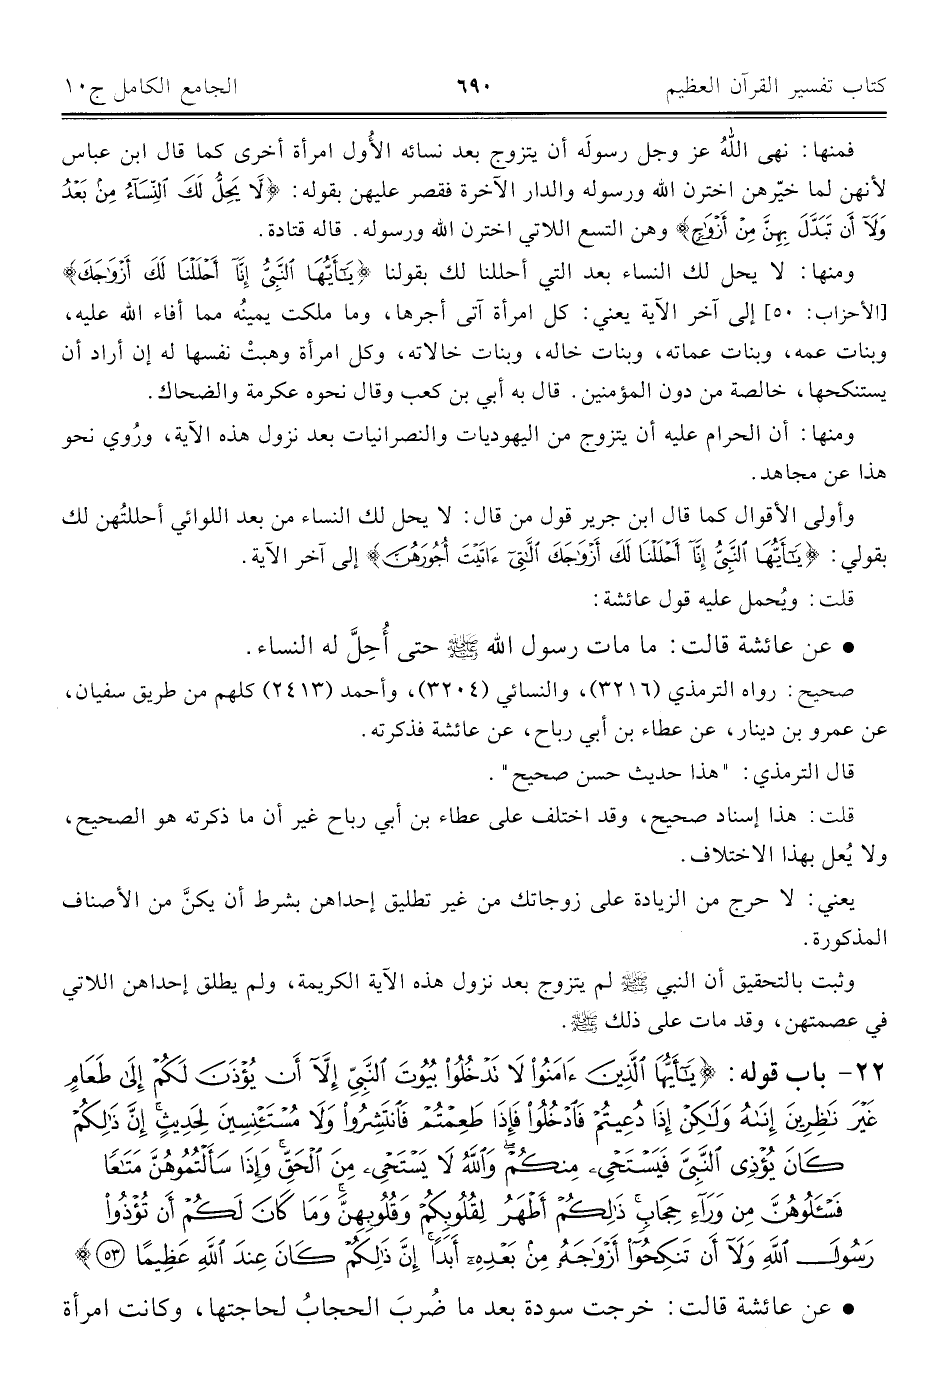 كتاب تفسير القرآن العظيم ٦٩٠ الجامع الكامل ج١٠
فمنها: نهى اللهُ عز وجل رسولَه أن يتزوج بعد نسائه الأُول امرأة أخرى كما قال ابن عباس
لأنهن لما خيّرهن اخترن الله ورسوله والدار الآخرة فقصر عليهن بقوله: ﴿لَّا يَحِلُّ لَكَ ٱلنِّسَآءُ مِنۢ بَعْدُ
وَلَآ أَن تَبَدَّلَ بِهِنَّ مِنْ أَزْوَٰجٍ﴾ وهن التسع اللاتي اخترن الله ورسوله. قاله قتادة.
ومنها: لا يحل لك النساء بعد التي أحللنا لك بقولنا ﴿يَٰٓأَيُّهَا ٱلنَّبِىُّ إِنَّآ أَحْلَلْنَا لَكَ أَزْوَٰجَكَ﴾
[الأحزاب: ٥٠] إلى آخر الآية يعني: كل امرأة آتى أجرها، وما ملكت يمينُه مما أفاء الله عليه،
وبنات عمه، وبنات عماته، وبنات خاله، وبنات خالاته، وكل امرأة وهبتْ نفسها له إن أراد أن
يستنكحها، خالصة من دون المؤمنين. قال به أبي بن كعب وقال نحوه عكرمة والضحاك.
ومنها: أن الحرام عليه أن يتزوج من اليهوديات والنصرانيات بعد نزول هذه الآية، ورُوي نحو
هذا عن مجاهد.
وأولى الأقوال كما قال ابن جرير قول من قال: لا يحل لك النساء من بعد اللوائي أحللتُهن لك
بقولي: ﴿يَٰٓأَيُّهَا ٱلنَّبِىُّ إِنَّآ أَحْلَلْنَا لَكَ أَزْوَٰجَكَ ٱلَّٰتِىٓ ءَاتَيْتَ أُجُورَهُنَّ﴾ إلى آخر الآية.
قلت: ويُحمل عليه قول عائشة:
• عن عائشة قالت: ما مات رسول الله ﷺ حتى أُحِلَّ له النساء.
صحيح: رواه الترمذي (٣٢١٦)، والنسائي (٣٢٠٤)، وأحمد (٢٤١٣) كلهم من طريق سفيان،
عن عمرو بن دينار، عن عطاء بن أبي رباح، عن عائشة فذكرته.
قال الترمذي: "هذا حديث حسن صحيح".
قلت: هذا إسناد صحيح، وقد اختلف على عطاء بن أبي رباح غير أن ما ذكرته هو الصحيح،
ولا يُعل بهذا الاختلاف.
يعني: لا حرج من الزيادة على زوجاتك من غير تطليق إحداهن بشرط أن يكنَّ من الأصناف
المذكورة.
وثبت بالتحقيق أن النبي ﷺ لم يتزوج بعد نزول هذه الآية الكريمة، ولم يطلق إحداهن اللاتي
في عصمتهن، وقد مات على ذلك ﷺ.
٢٢- باب قوله: ﴿يَٰٓأَيُّهَا ٱلَّذِينَ ءَامَنُوا۟ لَا تَدْخُلُوا۟ بُيُوتَ ٱلنَّبِىِّ إِلَّآ أَن يُؤْذَنَ لَكُمْ إِلَىٰ طَعَامٍ
غَيْرَ نَٰظِرِينَ إِنَىٰهُ وَلَٰكِنْ إِذَا دُعِيتُمْ فَٱدْخُلُوا۟ فَإِذَا طَعِمْتُمْ فَٱنتَشِرُوا۟ وَلَا مُسْتَـْٔنِسِينَ لِحَدِيثٍ ۚ إِنَّ ذَٰلِكُمْ
كَانَ يُؤْذِى ٱلنَّبِىَّ فَيَسْتَحْىِۦ مِنكُمْ ۖ وَٱللَّهُ لَا يَسْتَحْىِۦ مِنَ ٱلْحَقِّ ۚ وَإِذَا سَأَلْتُمُوهُنَّ مَتَٰعًا
فَسْـَٔلُوهُنَّ مِن وَرَآءِ حِجَابٍ ۚ ذَٰلِكُمْ أَطْهَرُ لِقُلُوبِكُمْ وَقُلُوبِهِنَّ ۚ وَمَا كَانَ لَكُمْ أَن تُؤْذُوا۟
رَسُولَ ٱللَّهِ وَلَآ أَن تَنكِحُوٓا۟ أَزْوَٰجَهُۥ مِنۢ بَعْدِهِۦٓ أَبَدًا ۚ إِنَّ ذَٰلِكُمْ كَانَ عِندَ ٱللَّهِ عَظِيمًا ﴿٥٣﴾﴾
• عن عائشة قالت: خرجت سودة بعد ما ضُربَ الحجابُ لحاجتها، وكانت امرأة